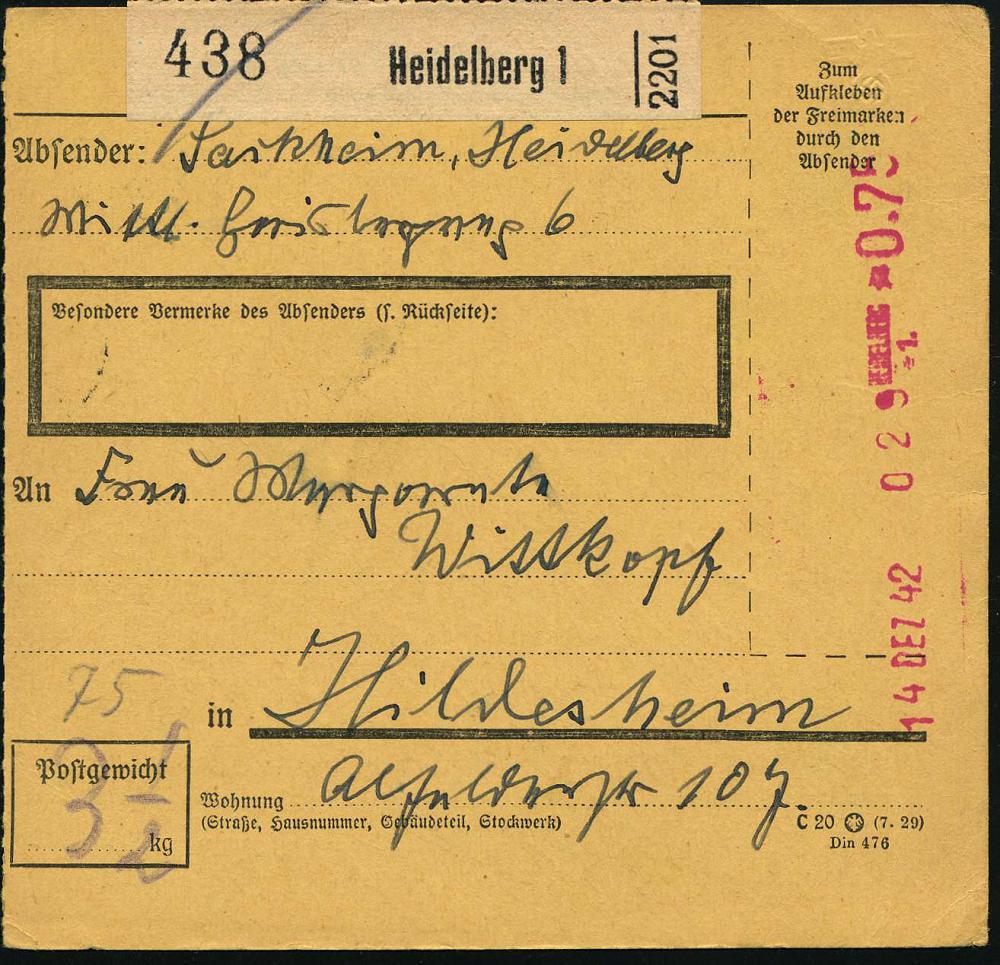 438 Heidelberg 1 2201
Zum
Aufkleben
der Freimarken
durch den
Absender
Absender: Heidelberg
6
Besondere Vermerke des Absenders (s. Rückseite):
An Frau Margarete
Wittkopf
75
in Hildesheim
Postgewicht
3 1/2
kg
Wohnung Alfelderstr 107.
(Straße, Hausnummer, Gebäudeteil, Stockwerk)
C 20 (7. 29)
Din 476
14 DEZ 42 029 HEIDELBERG -1. 0.75